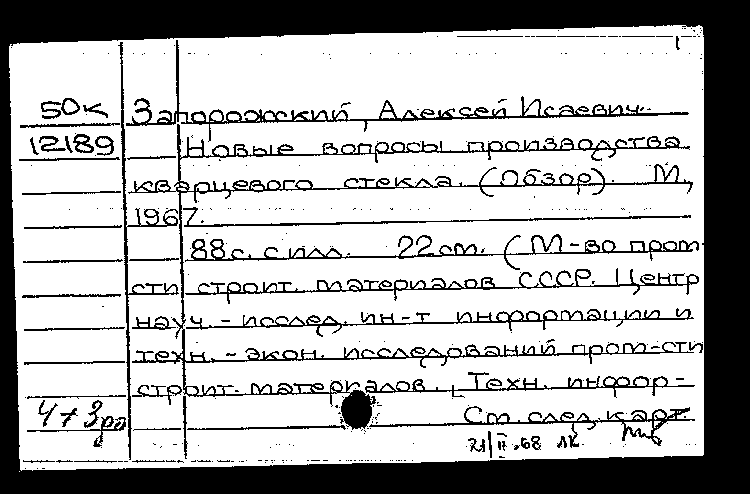 50к Запорожский, Алексей Исаевич.
12189 Новые вопросы производства
кварцевого стекла. (Обзор). М.,
1967.
88 с. с илл. 22 см. (М-во пром-
сти строит. материалов СССР. Центр
науч.-исслед. ин-т информации и
техн.-экон. исследований пром-сти
строит. материалов. Техн. инфор-
4+3 См. след. карт.
21/II.68 ЛК.